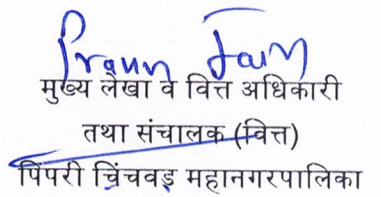 Praun Jain
मुख्य लेखा व वित्त अधिकारी
तथा संचालक (वित्त)
पिंपरी चिंचवड महानगरपालिका